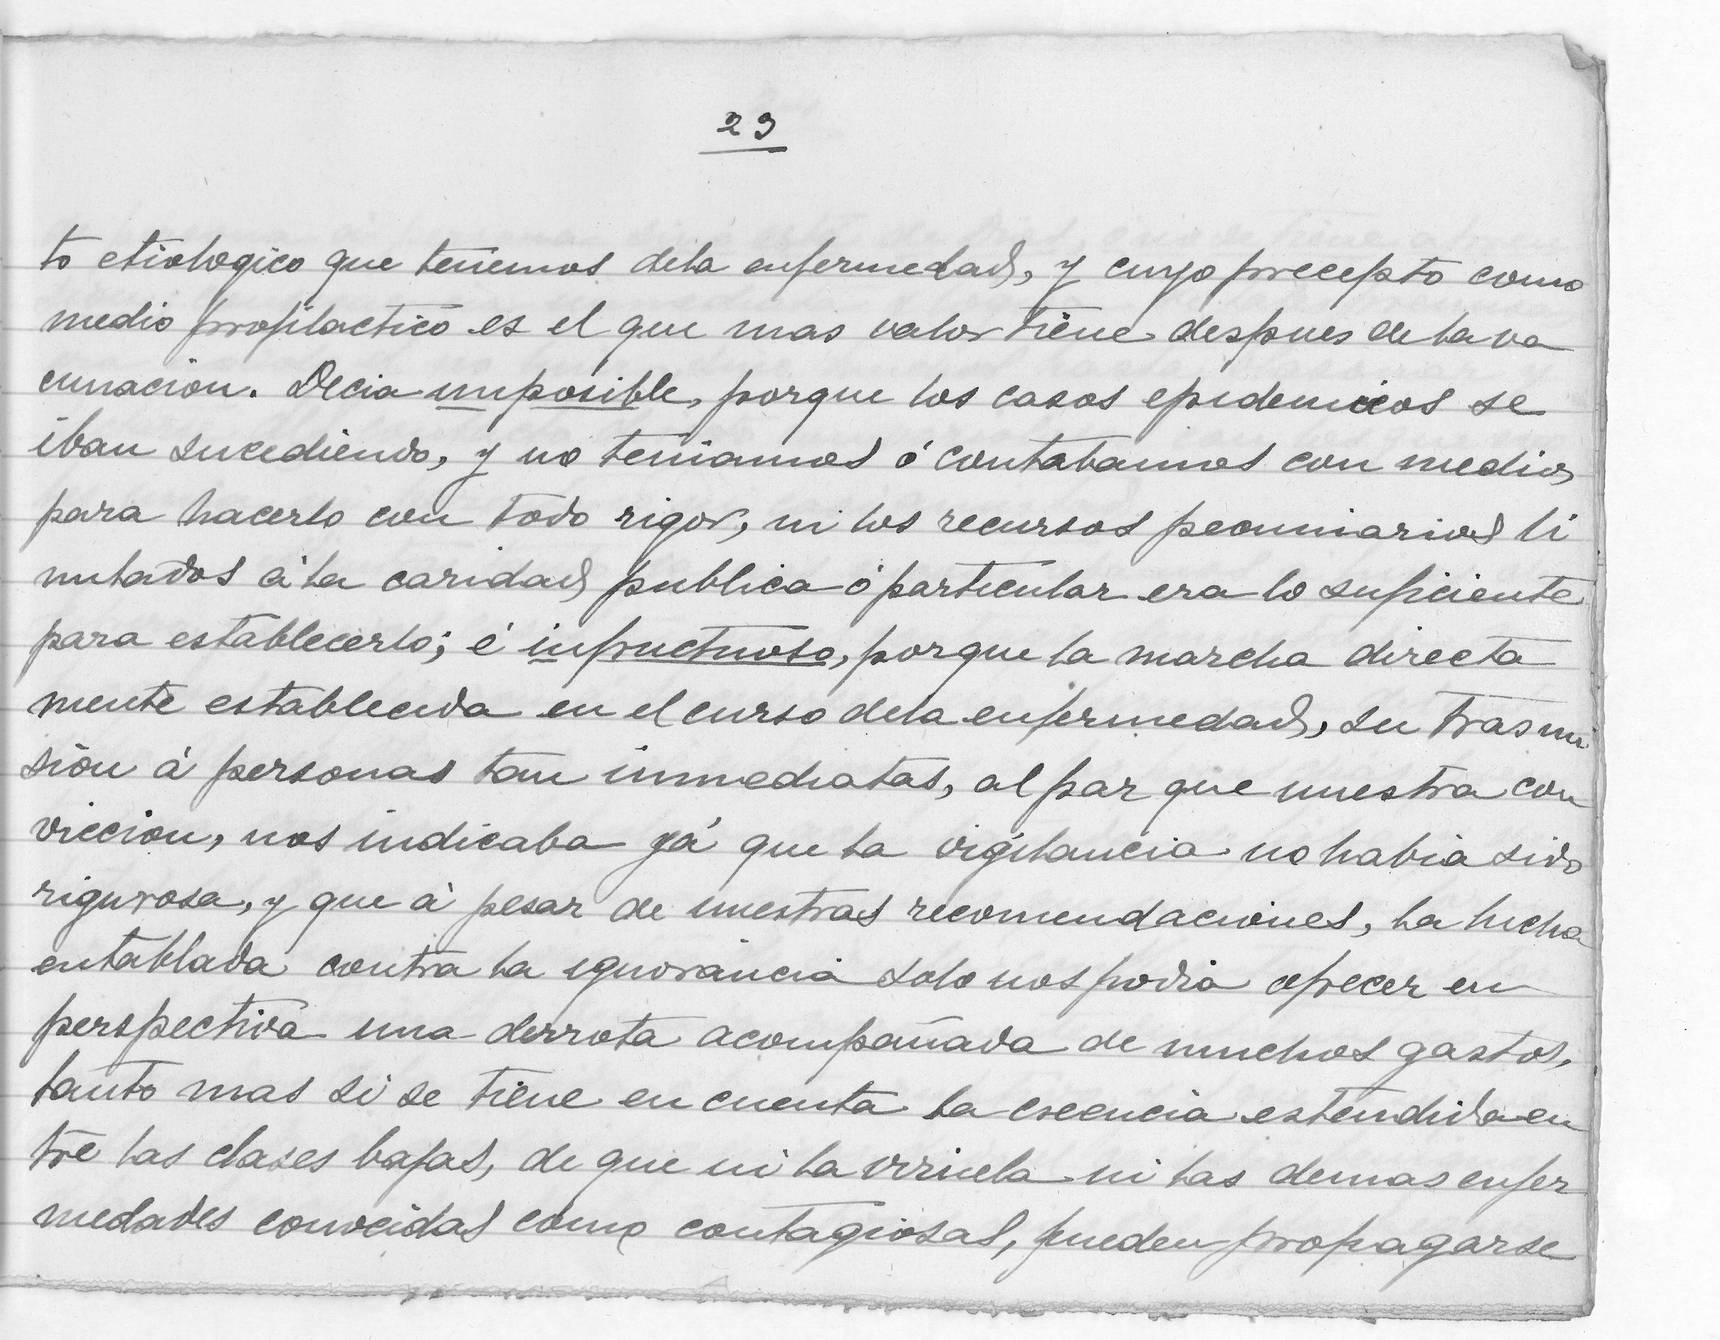 23
to etiologico que tenemos dela enfermedad, y cuyo precepto como
medio profilactico es el que mas valor tiene despues de la va
cunacion. Decia imposible, porque los casos epidemicos se
iban sucediendo, y no teniamos ó contabamos con medios
para hacerlo con todo rigor, ni los recursos pecuniarios li
mitados á la caridad publica ó particular era lo suficiente
para establecerlo; é infructuoso, porque la marcha directa
mente establecida en el curso dela enfermedad, su trasmi
sión á personas tan inmediatas, al par que nuestra con
viccion, nos indicaba yá que la vigilancia no habia sido
rigurosa, y que á pesar de nuestras recomendaciones, la lucha
entablada contra la ignorancia solo nos podia ofrecer en
perspectiva una derrota acompañada de muchos gastos,
tanto mas si se tiene en cuenta la creencia estendida en
tre las clases bajas, de que ni la viruela ni las demas enfer
medades conocidas como contagiosas, pueden propagarse